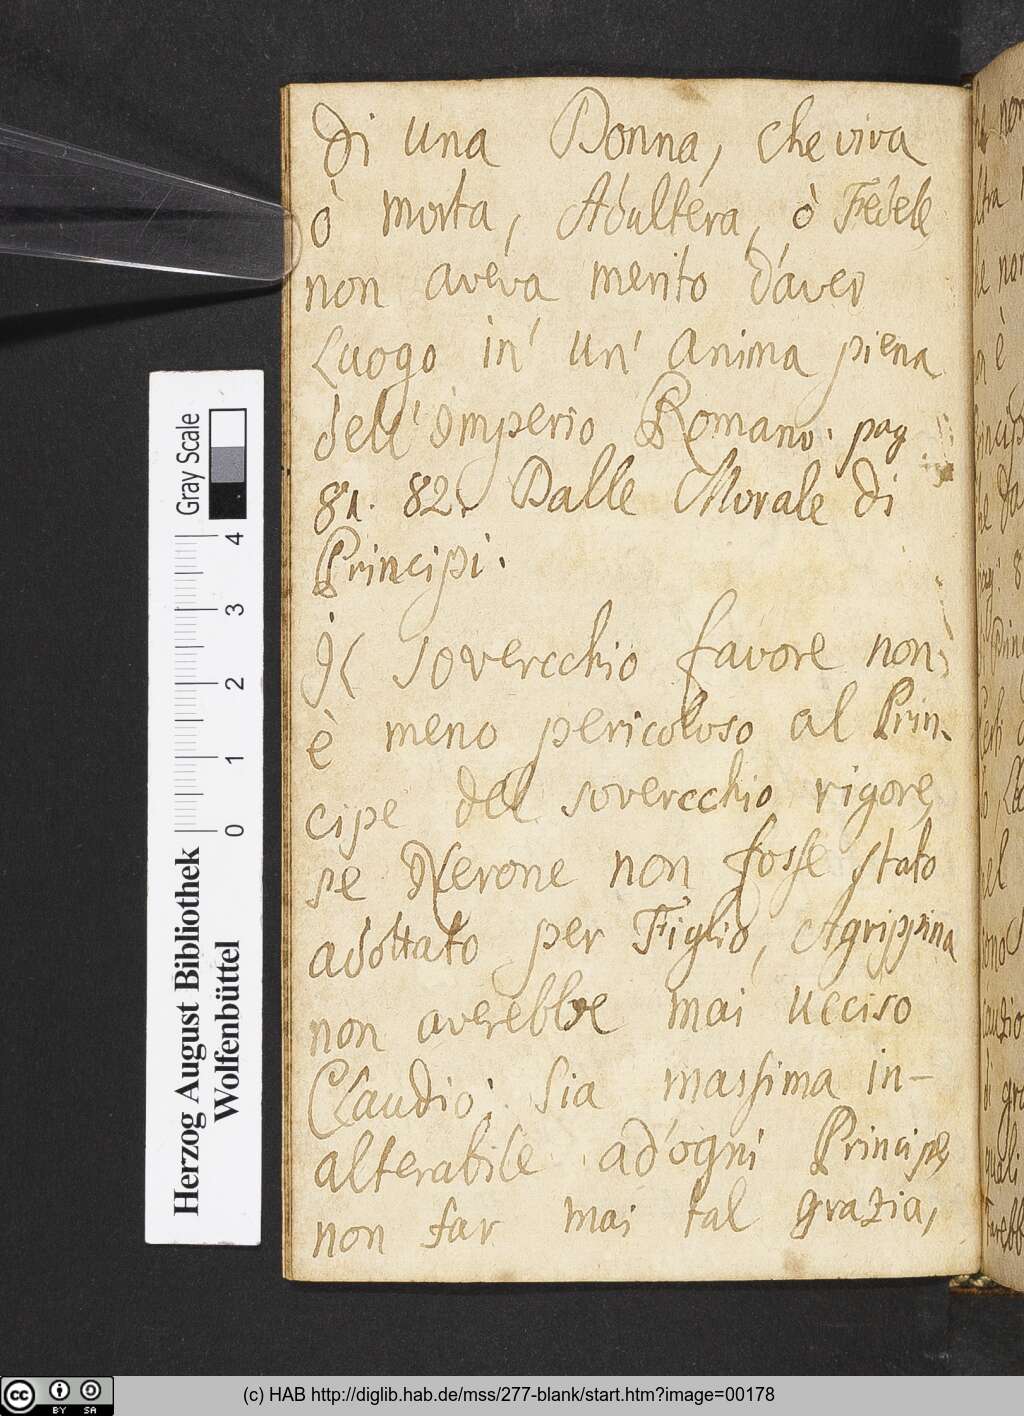 di una Donna, che viva
ò morta, Adultera, ò Fedele,
non aveva merito d'aver
Luogo in' un' anima piena
dell' Imperio Romano. pag
81. 82. Dalle Morale di
Principi.
Il soverchio favore non
è meno pericoloso al Prin-
cipe del soverchio rigore,
se Nerone non fosse stato
adottato per Figlio, Agrippina
non averebbe mai ucciso
Claudio; Sia massima in-
alterabile ad'ogni Principe,
non far mai tal grazia,
Gray Scale
4
3
2
1
0
Herzog August Bibliothek
Wolfenbüttel
cc BY SA
(c) HAB http://diglib.hab.de/mss/277-blank/start.htm?image=00178